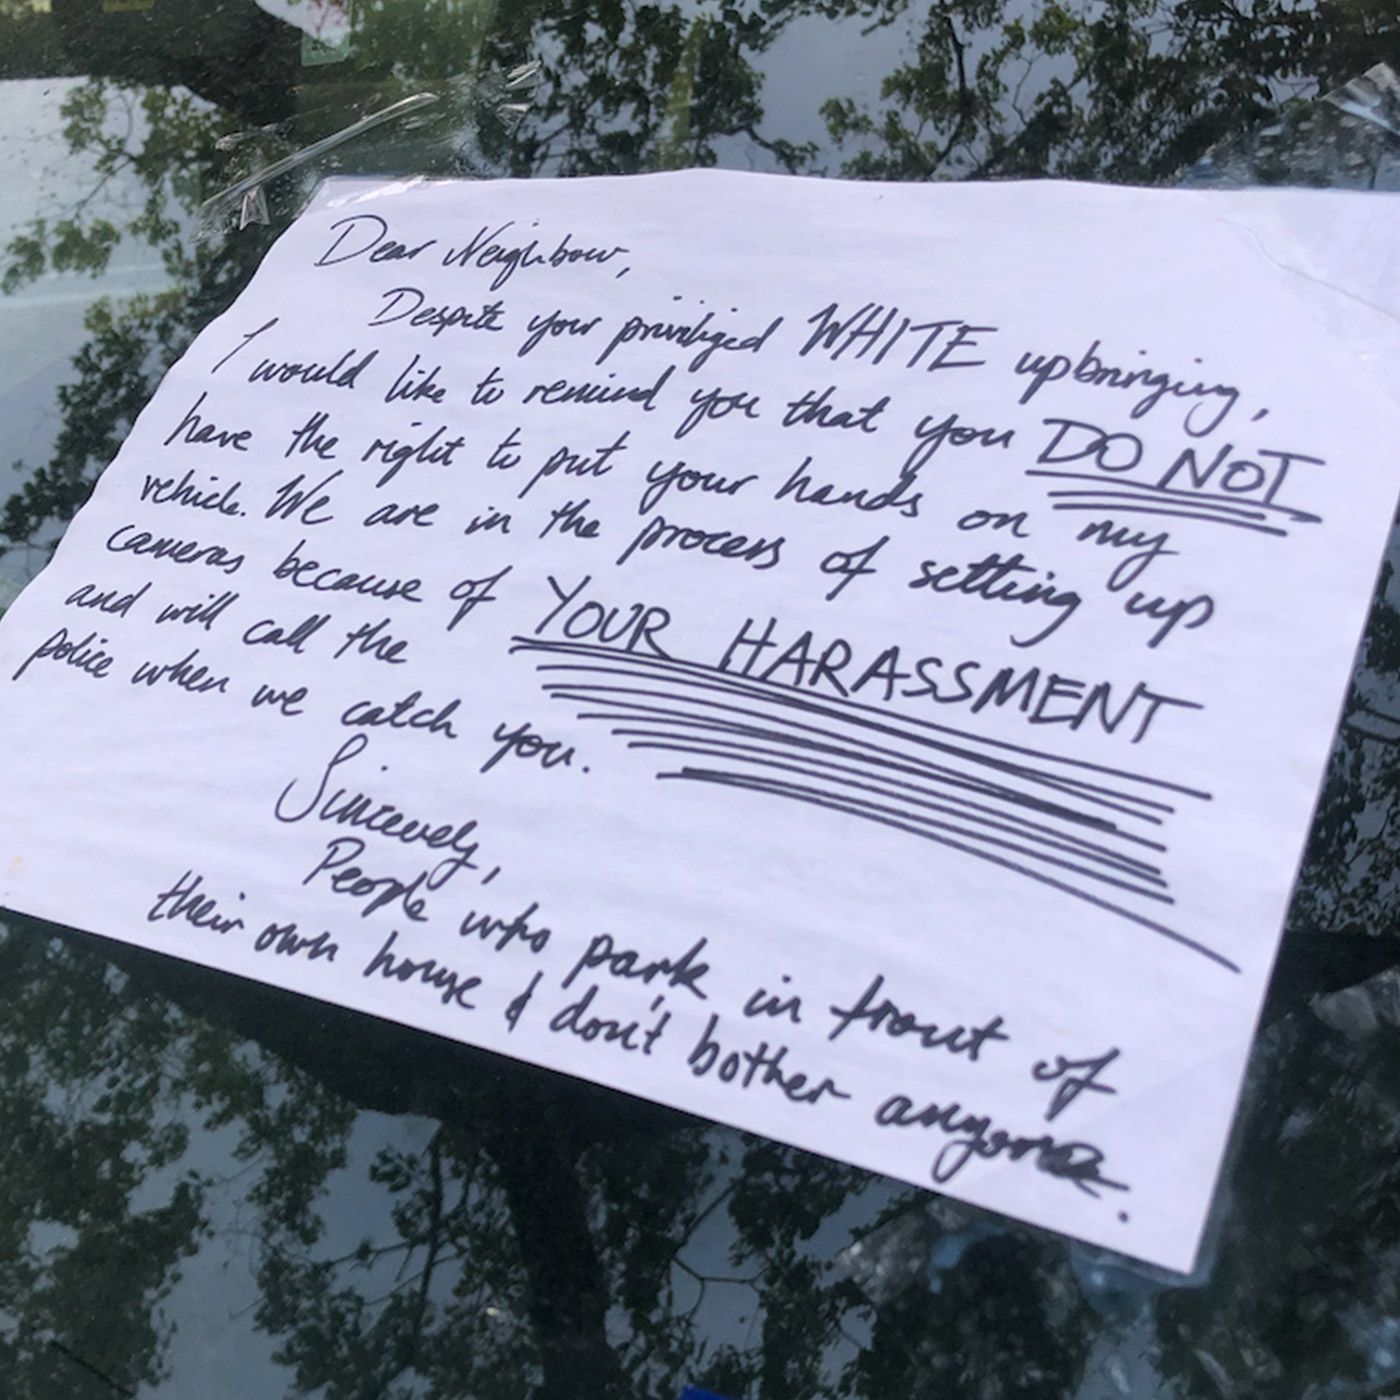 Dear Neighbour,
Despite your priviliged WHITE upbringing,
I would like to remind you that you DO NOT
have the right to put your hands on my
vehicle. We are in the process of setting up
cameras because of YOUR HARASSMENT
and will call the
police when we catch you.
Sincerely,
People who park in front of
their own house & don't bother anyone.